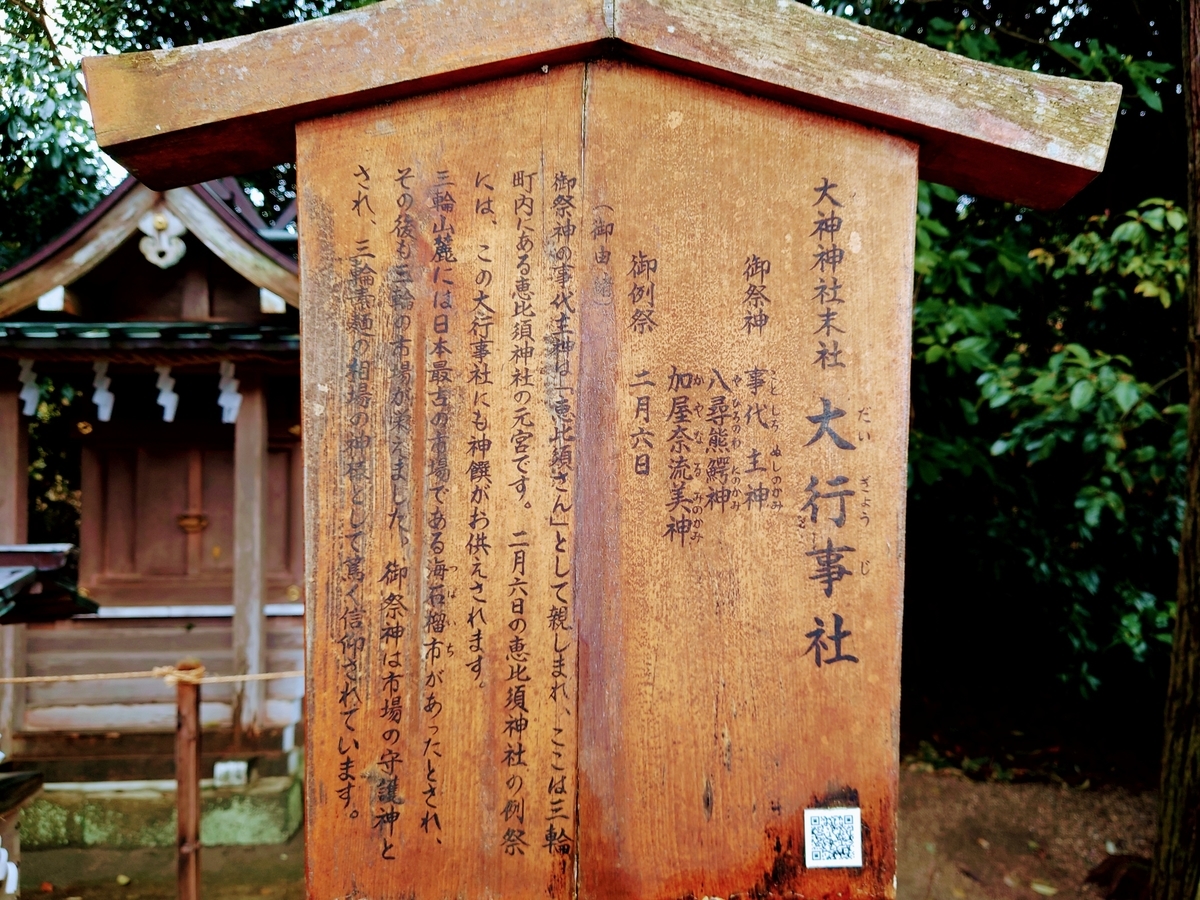 大神神社末社 大行事社
だいぎょうじ
御祭神 事代主神
ことしろぬしのかみ
八尋熊鰐神
やひろのわにのかみ
加屋奈流美神
かやなるみのかみ
御例祭 二月六日
(御由緒)
御祭神の事代主神は「恵比須さん」として親しまれ、ここは三輪
町内にある恵比須神社の元宮です。二月六日の恵比須神社の例祭
には、この大行事社にも神饌がお供えされます。
三輪山麓には日本最古の市場である海石榴市があったとされ、
つばいち
その後も三輪の市場が栄えました。御祭神は市場の守護神と
され、三輪素麺の相場の神様として篤く信仰されています。